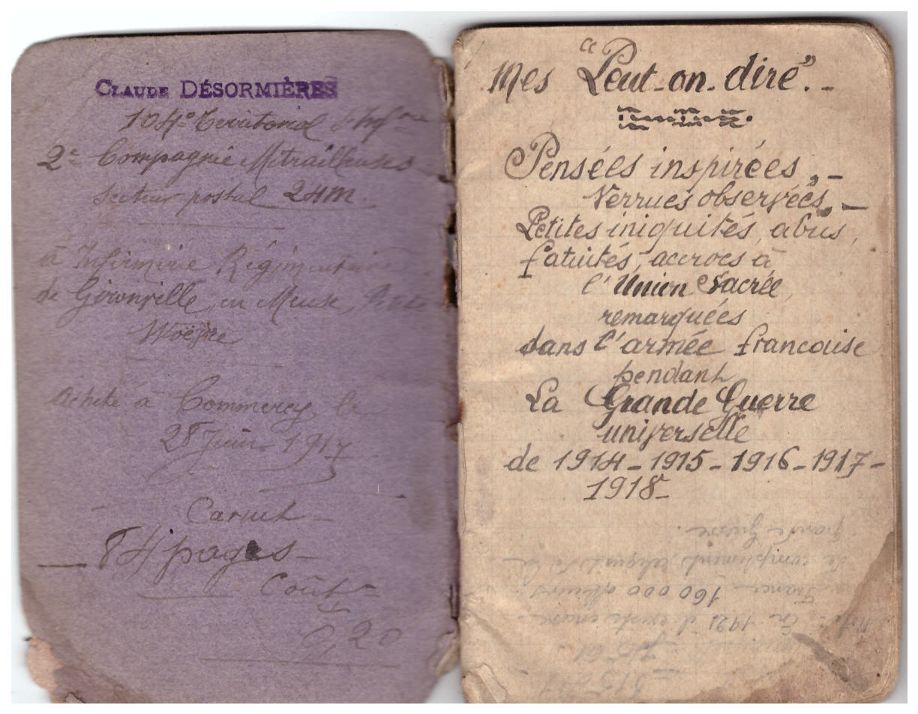 CLAUDE DÉSORMIÈRES
104e Territorial d'Infrie
2e Compagnie Mitrailleuses
Secteur postal 24m.
à Infirmerie Régimentaire
de Gironville, en Meuse,
Woëvre
Acheté à Commercy, le
28 Juin 1917
Carnet -
- 84 pages -
Coût -
0,20
Mes "Peut-on-dire". -
Pensées inspirées, -
Verrues observées, -
Petites iniquités, abus,
fatuités, accrocs à
l'Union Sacrée,
remarquées
dans l'armée francaise
pendant
La Grande Guerre
universelle
de 1914 - 1915 - 1916 - 1917 -
1918 -
En 1921 il existe encore
France 160 000
de compliments
grande guerre.